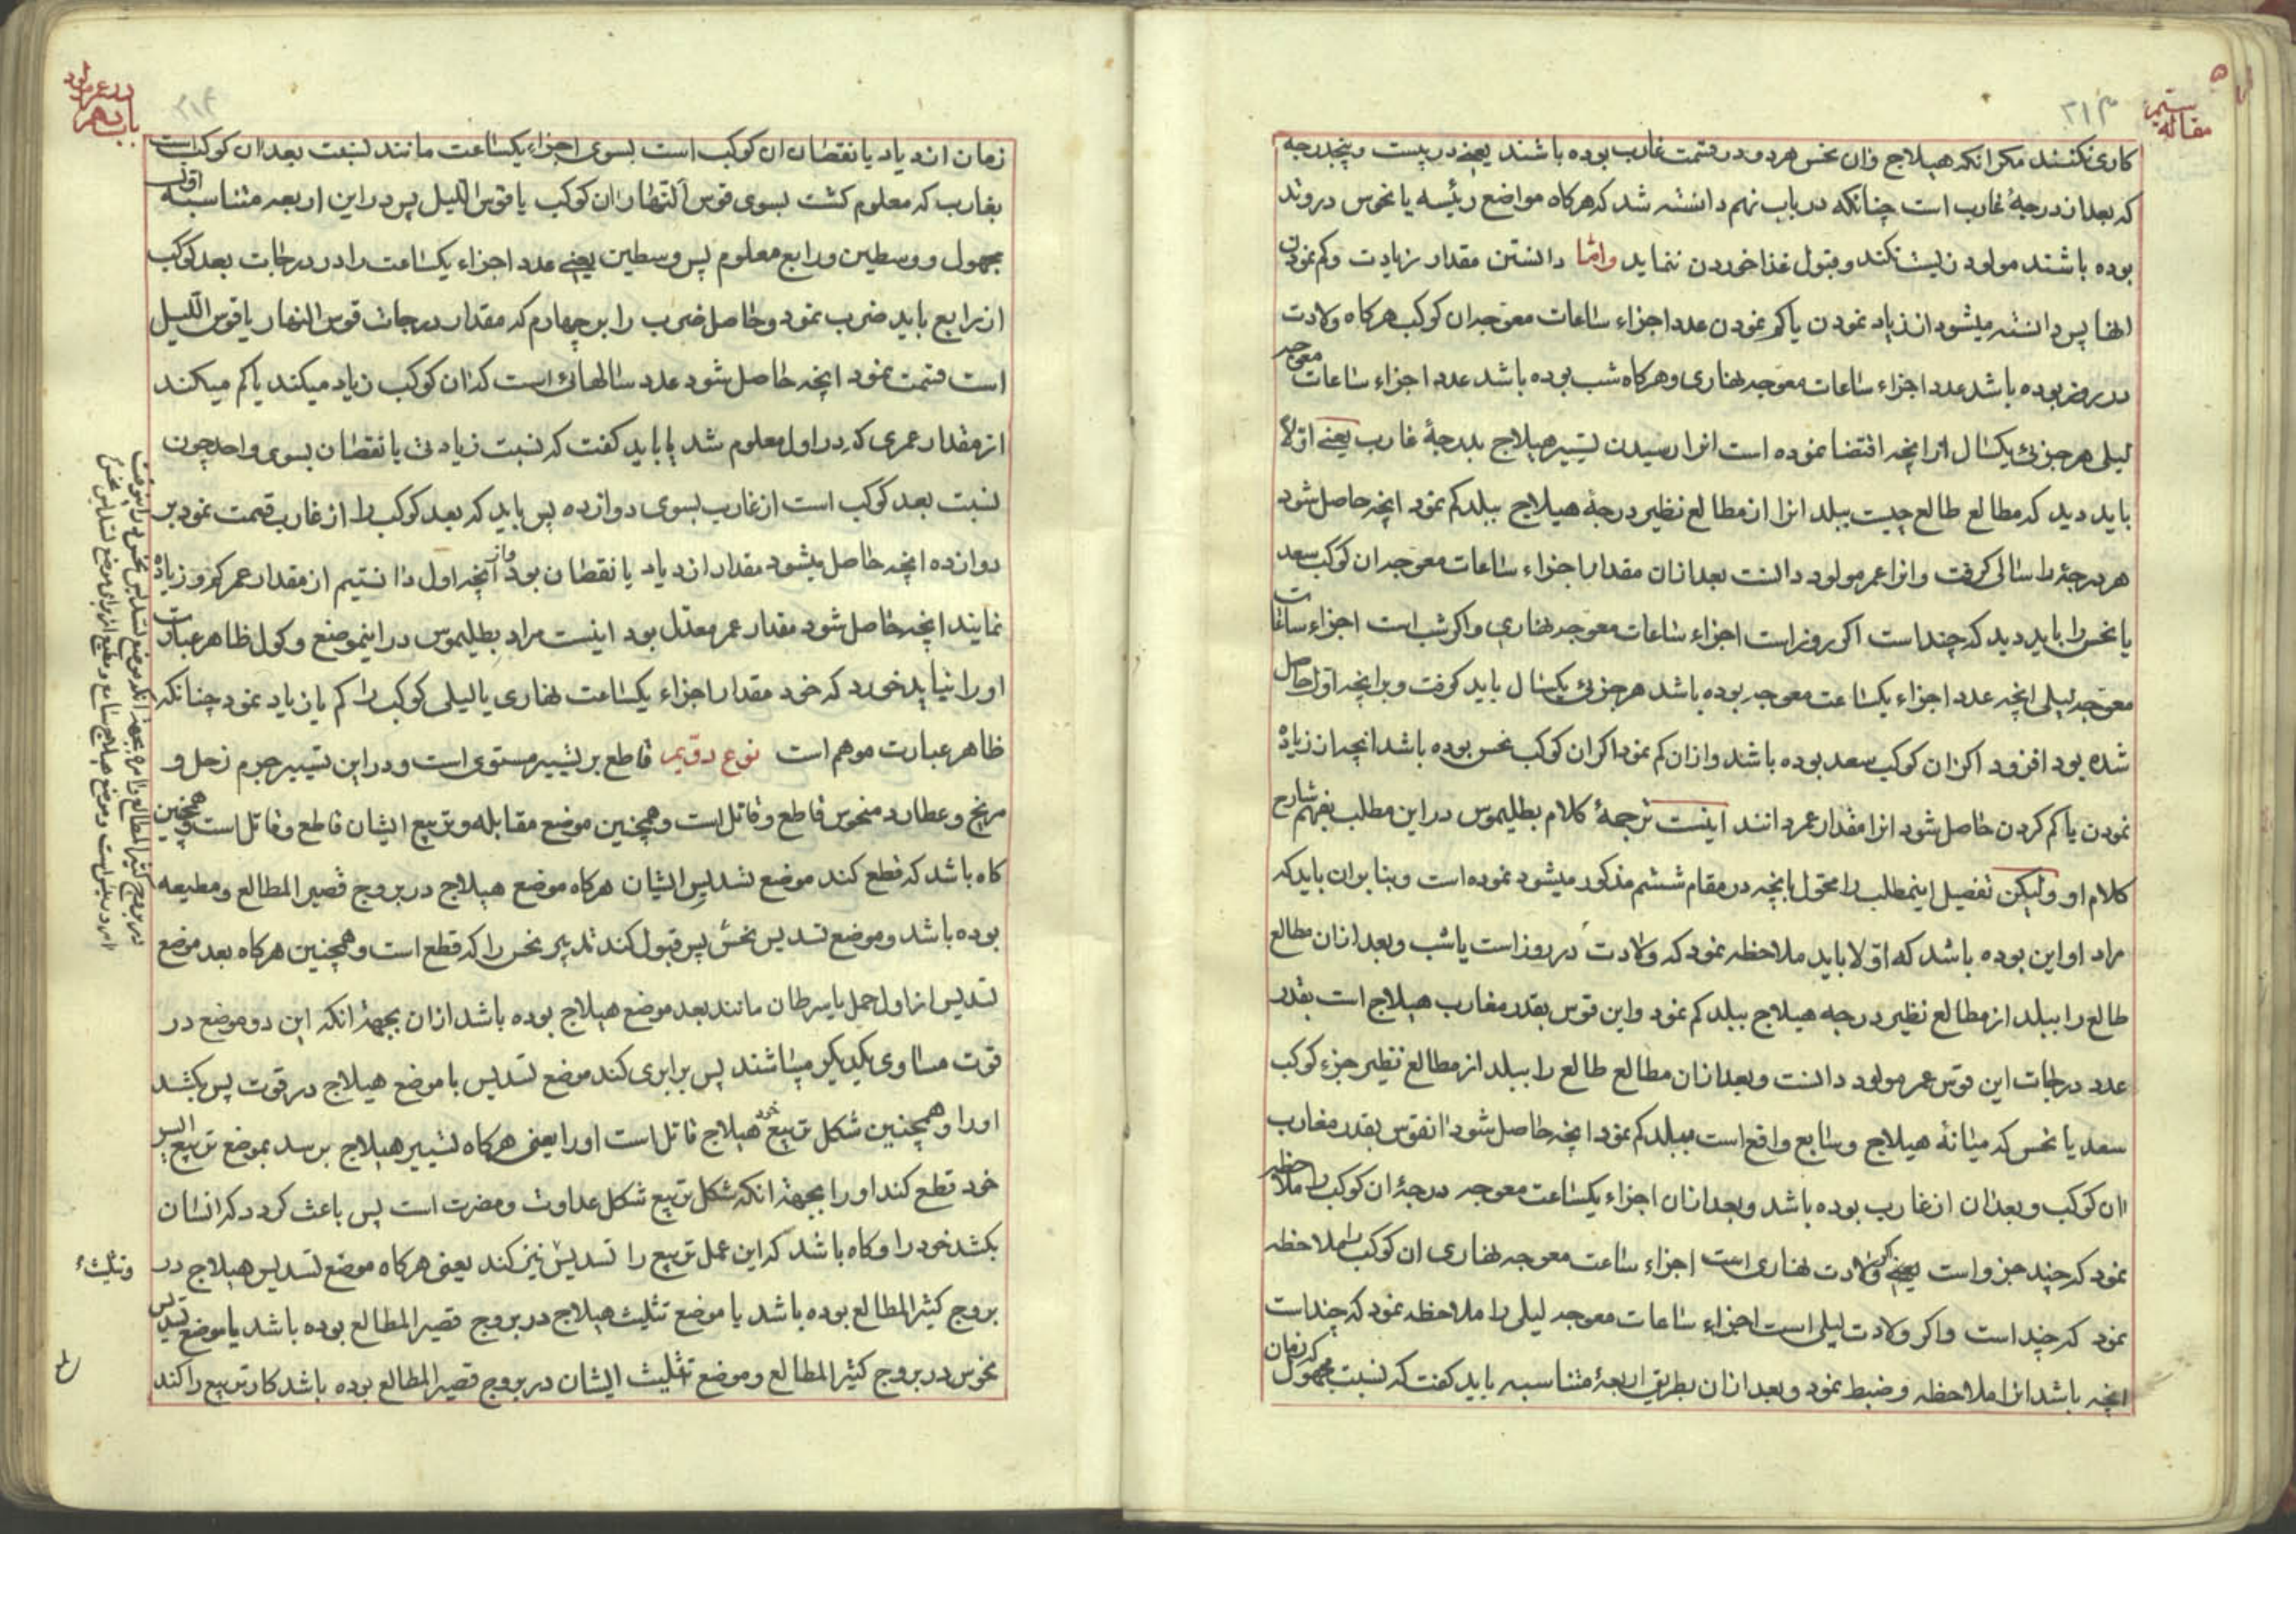 مقاله سیم
۲۱۳
کاری نکنند مکر انکه هیلاج وان نحس هردو در قسمت غارب بوده باشند یعنے در بیست و پنجدرجه
که بعد از درجۀ غارب است چنانکه در باب نهم دانسته شد که هرکاه مواضع رئیسه یا نحوس در وتد
بوده باشند مولود زیست نکند و قبول غذا خوردن ننماید واما دانستن مقدار زیادت و کم نمودن
انها پس دانسته میشود از زیاد نمودن یا کم نمودن عدد اجزاء ساعات معوجه ان کوکب هرکاه ولادت
در روز بوده باشد عدد اجزاء ساعات معوجه نهاری و هرکاه شب بوده باشد عدد اجزاء ساعات معوجه
لیلی هر جزئی یکسال انرا انچه اقتضا نموده است انرا رسیدن تسییر هیلاج بدرجۀ غارب یعنے اولا
باید دید که مطالع طالع چیست ببلد انرا از مطالع نظیر درجۀ هیلاج ببلد کم نمود انچه حاصل شود
هر درجۀ را سالی کرفت و انرا عمر مولود دانست بعد از ان مقدار اجزاء ساعات معوجه ان کوکب سعد
یا نحس را باید دید که چند است اکر روز است اجزاء ساعات معوجه نهاری و اکر شب است اجزاء ساعات
معوجه لیلی انچه عدد اجزاء یکساعت معوجه بوده باشد هر جزئی یکسال باید کرفت و بر انچه اول حاصل
شده بود افزود اکر ان کوکب سعد بوده باشد و از ان کم نمود اکر ان کوکب نحس بوده باشد انچه از زیاده
نمودن یا کم کردن حاصل شود انرا مقدار عمر دانند اینست ترجمۀ کلام بطلیموس در این مطلب بفهم شارح
کلام او ولیکن تفصیل اینمطلب را محول بانچه در مقام ششم مذکور میشود نموده است و بنابر ان باید که
مراد او این بوده باشد که اولا باید ملاحظه نمود که ولادت در روز است یا شب و بعد از ان مطالع
طالع را ببلد از مطالع نظیر درجه هیلاج ببلد کم نمود و این قوس بقدر مغارب هیلاج است بقدر
عدد درجات این قوس عمر مولود دانست و بعد از ان مطالع طالع را ببلد از مطالع نظیر جزء کوکب
سعد یا نحس که میانۀ هیلاج و سابع واقع است ببلد کم نمود انچه حاصل شود انقوس بقدر مغارب
ان کوکب و بعد ان از غارب بوده باشد و بعد از ان اجزاء یکساعت معوجه درجۀ ان کوکب را ملاحظه
نمود که چند جزو است یعنے اکر ولادت نهاری است اجزاء ساعت معوجه نهاری ان کوکب را ملاحظه
نمود که چند است و اکر ولادت لیلی است اجزاء ساعات معوجه لیلی را ملاحظه نمود که چند است
انچه باشد انرا ملاحظه و ضبط نمود و بعد از ان بطریق اربعۀ متناسبه باید کفت که نسبت مجهول که زمان
باب دهم
در عمر مولود
۲۱۴
زمان ازدیاد یا نقصان ان کوکب است بسوی اجزاء یکساعت مانند نسبت بعد ان کوکب است
بغارب که معلوم کشت بسوی قوس النهار ان کوکب یا قوس اللیل پس در این اربعه متناسبه اول
مجهول و وسطین و رابع معلوم پس وسطین یعنے عدد اجزاء یکساعت را در درجات بعد کوکب
از رابع باید ضرب نمود و حاصل ضرب را بر چهارم که مقدار درجات قوس النهار یا قوس اللیل
است قسمت نمود انچه حاصل شود عدد سالهائی است که ان کوکب زیاد میکند یا کم میکند
از مقدار عمری که در اول معلوم شد یا باید کفت که نسبت زیادتی یا نقصان بسوی واحد چون
نسبت بعد کوکب است از غارب بسوی دوازده پس باید که بعد کوکب را از غارب قسمت نمود بر
دوازده انچه حاصل میشود مقدار ازدیاد یا نقصان بود و از انچه اول دانستیم از مقدار عمر کم و زیاده
نمایند انچه حاصل شود مقدار عمر معتدل بود اینست مراد بطلیموس در اینموضع و کول ظاهر عبارت
او را نباید خورد که خود مقدار اجزاء یکساعت نهاری یا لیلی کوکب را کم یا زیاد نمود چنانکه
ظاهر عبارت موهم است نوع دویم قاطع بر تسییر مستوی است و در این تسییر جرم زحل و
مریخ و عطارد منحوس قاطع و قاتل است و همچنین موضع مقابله و تربیع ایشان قاطع و قاتل است و همچنین
کاه باشد که قطع کند موضع تسدیس ایشان هرکاه موضع هیلاج در بروج قصیر المطالع و مطیعه
بوده باشد و موضع تسدیس نحس پس قبول کند تدبیر نحس را که قطع است و همچنین هرکاه بعد موضع
تسدیس از اول حمل یا سرطان مانند بعد موضع هیلاج بوده باشد از ان بجهۀ انکه این دو موضع در
قوت مساوی یکدیکر میباشند پس برابری کند موضع تسدیس با موضع هیلاج در قوت پس بکشد
او را و همچنین شکل تربیع خود هیلاج قاتل است او را یعنی هرکاه تسییر هیلاج برسد بموضع تربیع ایسر
خود قطع کند او را بجهۀ انکه شکل تربیع شکل عداوت و مضرت است پس باعث کردد که انسان
بکشد خود را و کاه باشد که این عمل تربیع را تسدیس نیز کند یعنی هرکاه موضع تسدیس هیلاج در
بروج کثیر المطالع بوده باشد یا موضع تثلیث هیلاج در بروج قصیر المطالع بوده باشد یا موضع تسدیس
نحوس در بروج کثیر المطالع و موضع تثلیث ایشان در بروج قصیر المطالع بوده باشد کار تربیع را کند